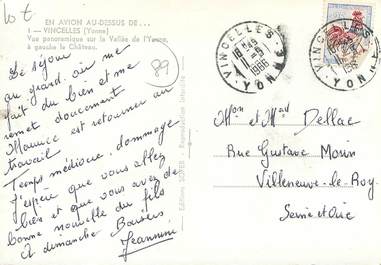 10 t
EN AVION AU-DESSUS DE...
1 - VINCELLES (Yonne)
Vue panoramique sur la Vallée de l'Yonne,
à gauche le Château.
89
Le séjour
au grand air me
fait du bien et me
remet doucement
Maurice est retourner au
travail
Temps médiocre, dommage
j'espère que vous allez
bien et que vous avez de
bonne nouvelle du fils
A dimanche Baisers
Jeannine
VINCELLES
1966
YONNE
VINCELLES
YONNE
Mon et Mad Dellac
Rue Gustave Morin
Villeneuve-le-Roy
Seine et Oise